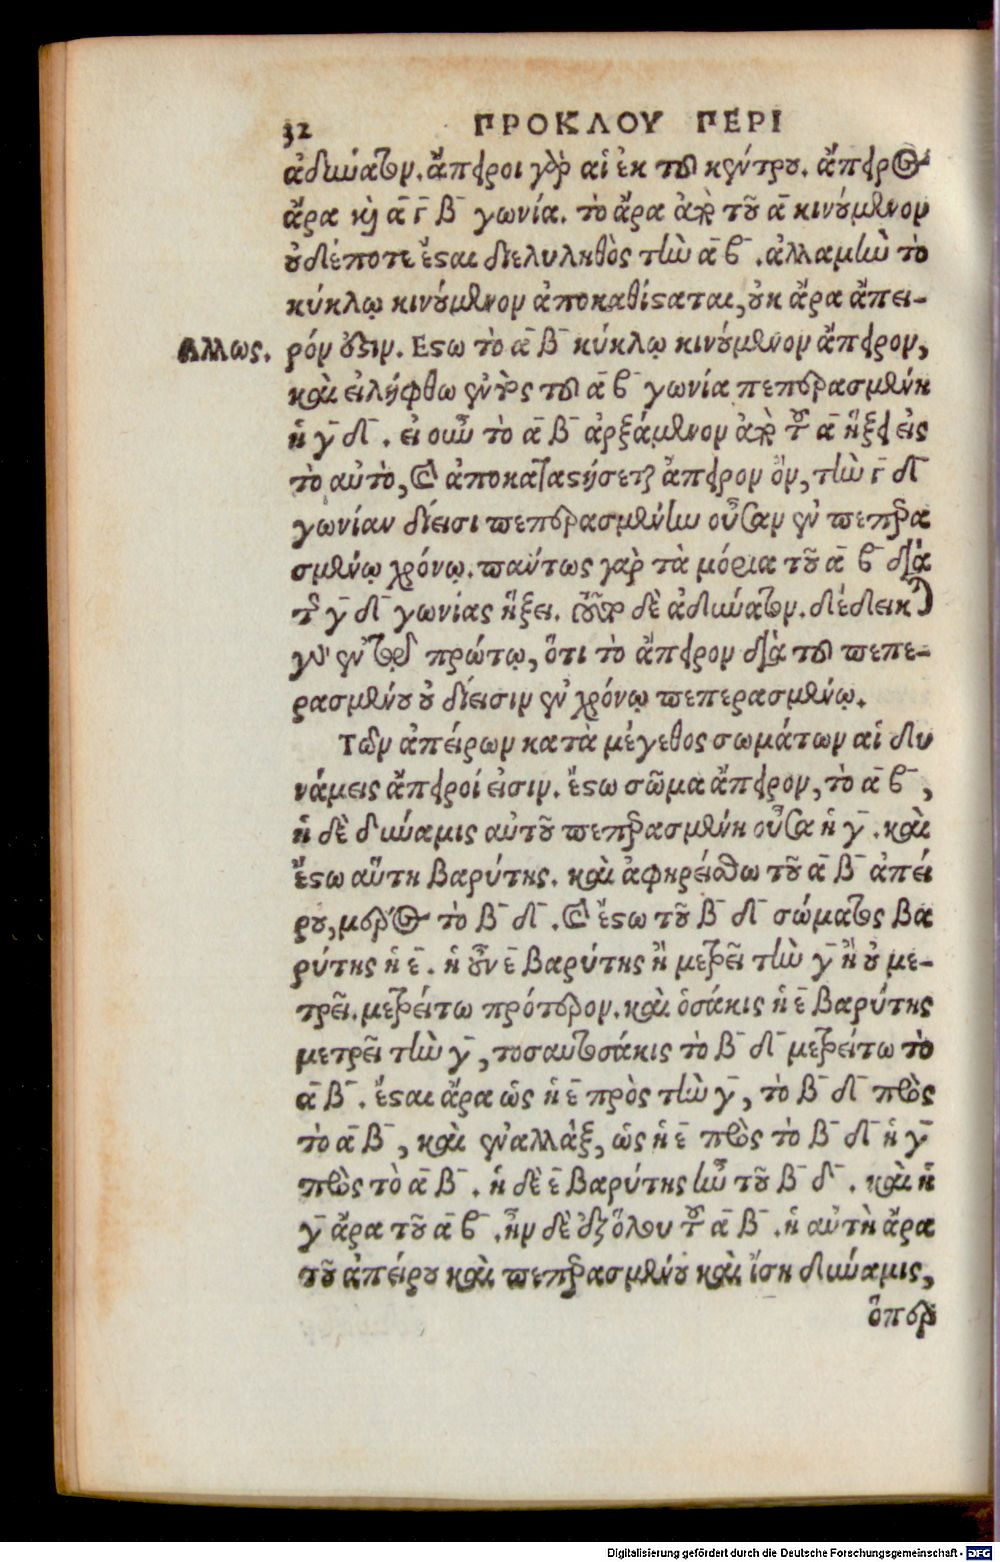 32 ΠΡΟΚΛΟΥ ΠΕΡΙ
ἀδύνατον. ἄπειροι γὰρ αἱ ἐκ τοῦ κέντρου. ἄπειρος
ἄρα καὶ ᾱ γ̄ β̄ γωνία. τὸ ἄρα ἀπὸ τοῦ ᾱ κινούμενον
οὐδέποτε ἔσται διεληλυθὸς τὴν ᾱ β̄. ἀλλαμὴν τὸ
κύκλῳ κινούμενον ἀποκαθίσταται, οὐκ ἄρα ἄπει-
Αλλως. ρόν ὅστιν. Εστω τὸ ᾱ β̄ κύκλῳ κινούμενον ἄπειρον,
καὶ εἰλήφθω ἐντὸς τοῦ ᾱ β̄ γωνία πεπερασμένη
ἡ γ̄ δ̄. εἰ οὖν τὸ ᾱ β̄ ἀρξάμενον ἀπὸ τοῦ ᾱ ἥξει εἰς
τὸ αὐτὸ, καὶ ἀποκαταστήσεται ἄπειρον ὂν, τὴν γ̄ δ̄
γωνίαν δίεισι πεπερασμένην οὖσαν ἐν πεπερα
σμένῳ χρόνῳ. πάντως γὰρ τὰ μόρια τοῦ ᾱ β̄ διὰ
τῆς γ̄ δ̄ γωνίας ἥξει. τοῦτο δὲ ἀδύνατον. δέδεικται
γὰρ ἐν τῷ πρώτῳ, ὅτι τὸ ἄπειρον διὰ τοῦ πεπε-
ρασμένου οὐ δίεισιν ἐν χρόνῳ πεπερασμένῳ.
Τῶν ἀπείρων κατὰ μέγεθος σωμάτων αἱ δυ
νάμεις ἄπειροί εἰσιν. ἔστω σῶμα ἄπειρον, τὸ ᾱ β̄,
ἡ δὲ δύναμις αὐτοῦ πεπερασμένη οὖσα ἡ γ̄. καὶ
ἔστω αὕτη βαρύτης. καὶ ἀφῃρείσθω τοῦ ᾱ β̄ ἀπεί
ρου, μέρος τὸ β̄ δ̄. καὶ ἔστω τοῦ β̄ δ̄ σώματος βα
ρύτης ἡ ε̄. ἡ οὖν ε̄ βαρύτης ἢ μετρεῖ τὴν γ̄ ἢ οὐ με-
τρεῖ. μετρείτω πρότερον. καὶ ὁσάκις ἡ ε̄ βαρύτης
μετρεῖ τὴν γ̄, τοσαυτάκις τὸ β̄ δ̄ μετρείτω τὸ
ᾱ β̄. ἔσται ἄρα ὡς ἡ ε̄ πρὸς τὴν γ̄, τὸ β̄ δ̄ πρὸς
τὸ ᾱ β̄, καὶ ἐναλλὰξ, ὡς ἡ ε̄ πρὸς τὸ β̄ δ̄ ἡ γ̄
πρὸς τὸ ᾱ β̄. ἡ δὲ ε̄ βαρύτης ἦν τοῦ β̄ δ̄. καὶ ἡ
γ̄ ἄρα τοῦ ᾱ β̄. ἦν δὲ ἐξ ὅλου τοῦ ᾱ β̄. ἡ αὐτὴ ἄρα
τοῦ ἀπείρου καὶ πεπερασμένου καὶ ἴση δύναμις,
ὅπερ
Digitalisierung gefördert durch die Deutsche Forschungsgemeinschaft - DFG